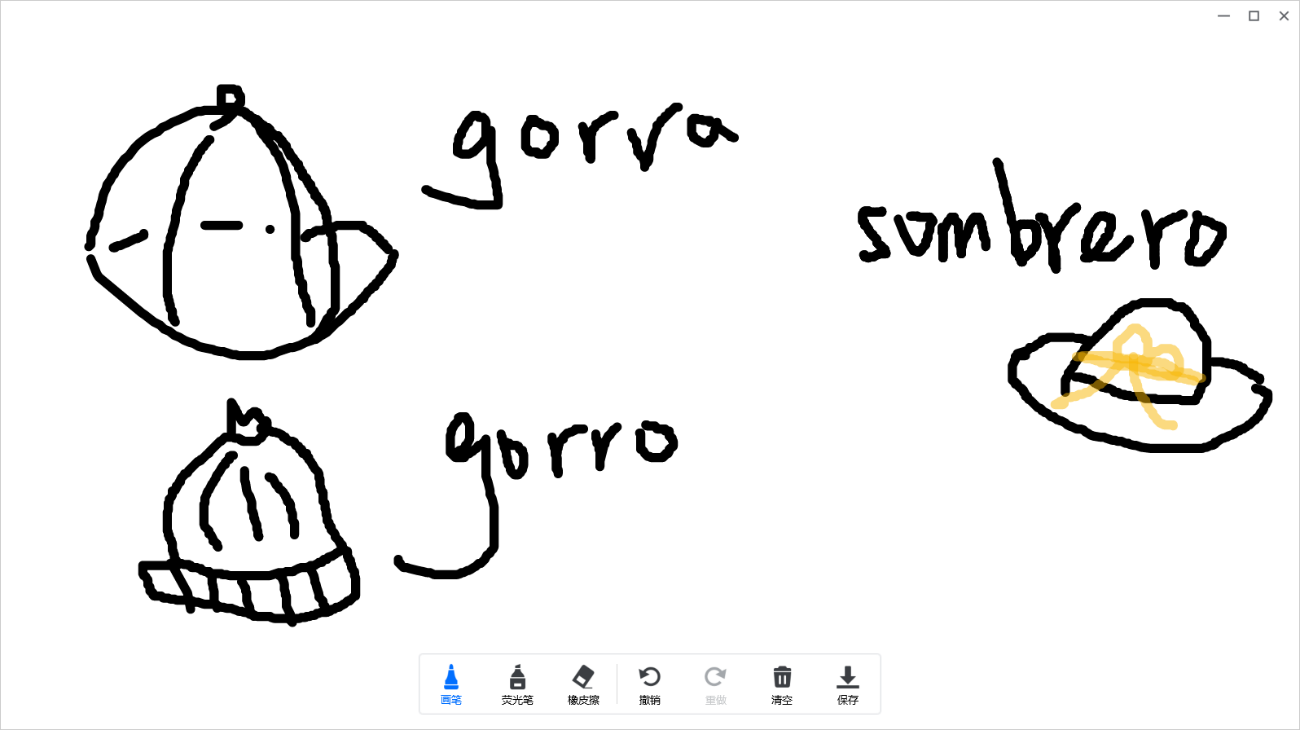 gorra
sombrero
gorro
画笔 荧光笔 橡皮擦 撤销 重做 清空 保存